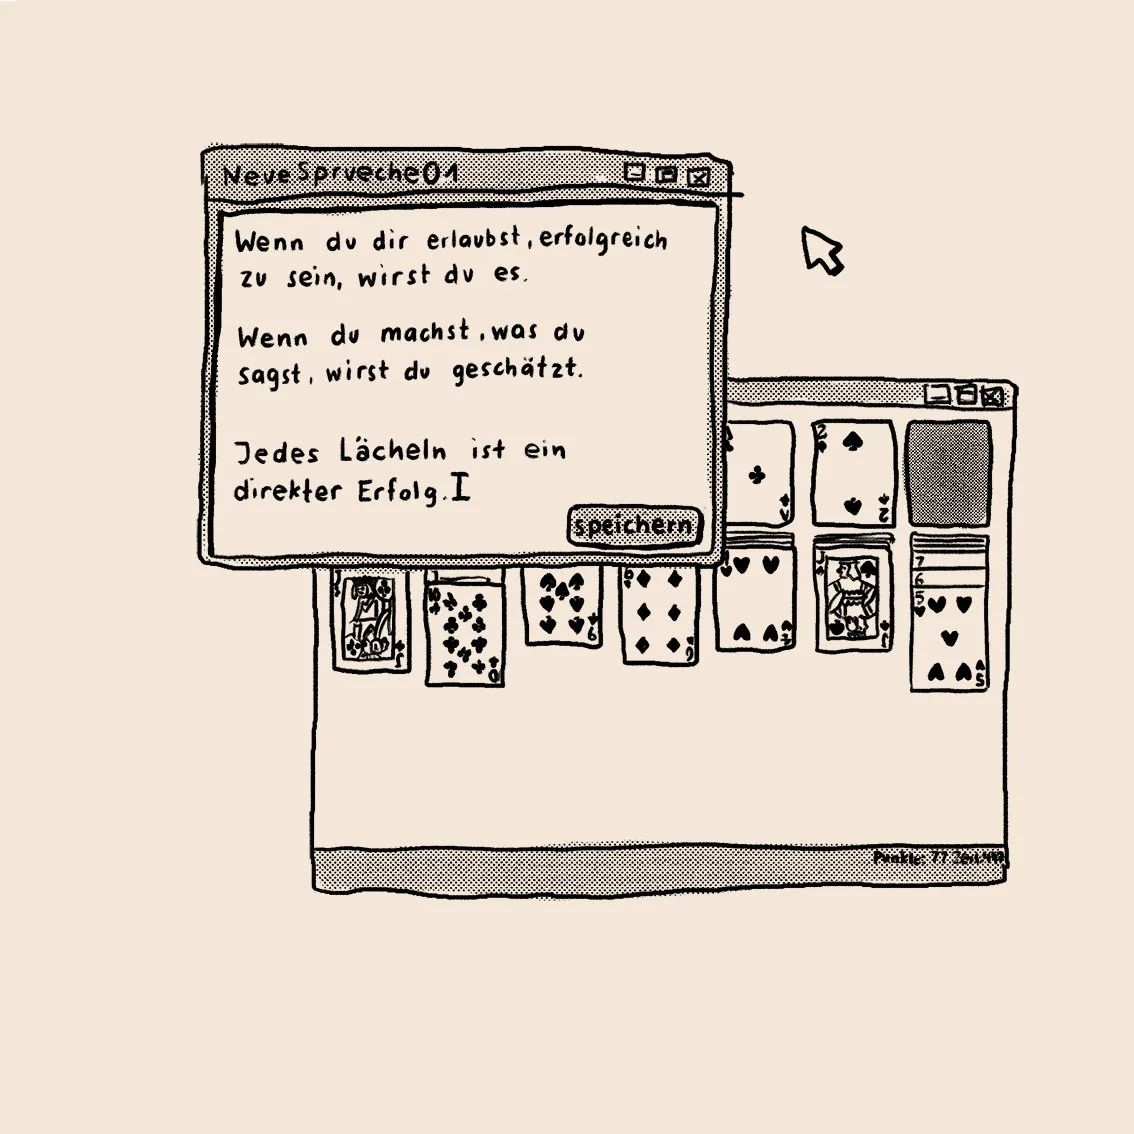 NeueSprueche01
Wenn du dir erlaubst, erfolgreich
zu sein, wirst du es.
Wenn du machst, was du
sagst, wirst du geschätzt.
Jedes Lächeln ist ein
direkter Erfolg.
speichern
A
2
2
7
6
5
5
J
J
10
9
J
J
Punkte: 77 Zeit: